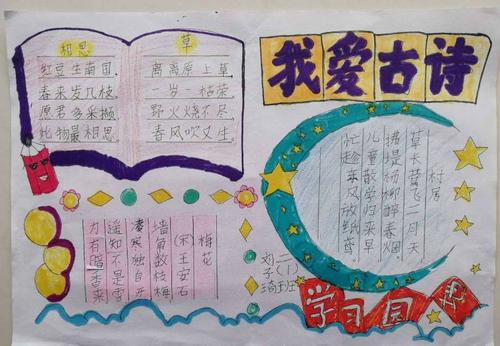 我爱古诗
相思
红豆生南国,
春来发几枝,
愿君多采撷,
此物最相思。
草
离离原上草,
一岁一枯荣,
野火烧不尽,
春风吹又生。
村居
草长莺飞二月天
拂堤杨柳醉春烟,
儿童散学归来早
忙趁东风放纸鸢。
梅花
(宋)王安石
墙角数枝梅
凌寒独自开
遥知不是雪
为有暗香来
二(1)班
刘子琦
学习园